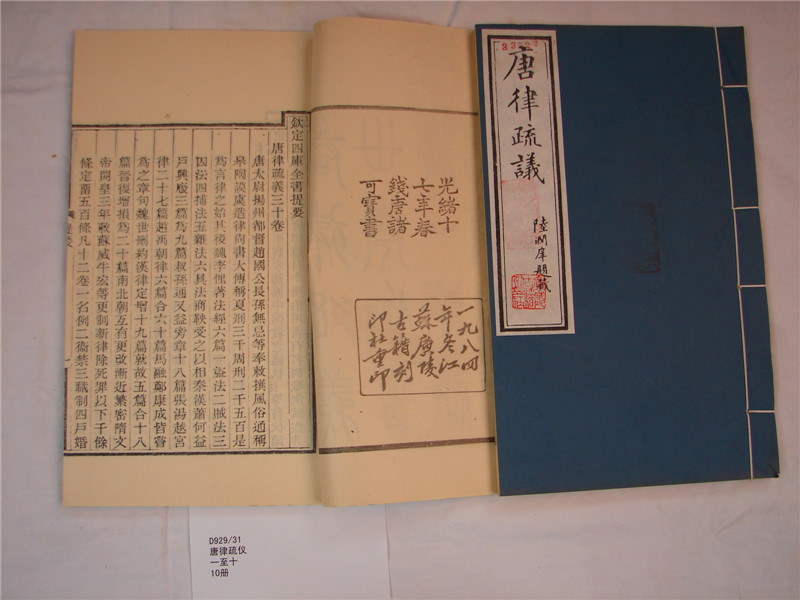 唐律疏議
陸潤庠
光緒十
七年春
錢唐諸
可寶書
一九八四
年冬江
蘇廣陵
古籍刻
印社重印
欽定四庫全書提要
唐律疏義三十卷
唐太尉揚州都督趙國公長孫無忌等奉敕撰風俗通稱
皋陶謨虞造律尚書大傳稱夏刑三千周刑二千五百是
為言律之始其後魏李悝著法經六篇一盜法二賊法三
囚法四捕法五雜法六具法商鞅受之以相秦漢蕭何益
戶興廄三篇為九篇叔孫通又益旁章十八篇張湯越宮
律二十七篇趙禹朝律六篇合六十篇馬融鄭康成皆嘗
為之章句魏世刪約漢律定增十九篇就故五篇合十八
篇晉復增損為二十篇南北朝互有更改漸近繁密隋文
帝開皇三年敕蘇威牛宏等更制新律除死罪以下千餘
條定留五百條凡十二卷一名例二衛禁三職制四戶婚
D929/31
唐律疏仪
一至十
10册